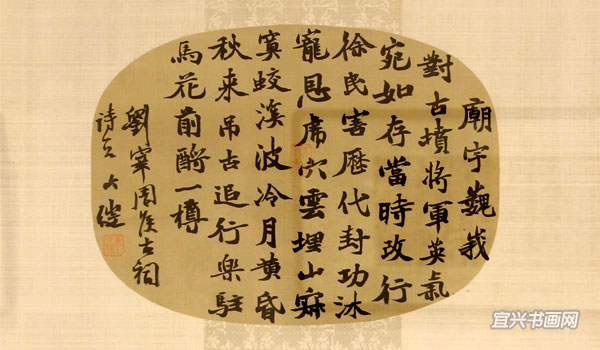 廟宇巍峩
對古墳將軍英氣
宛如存當時政行
徐民害歷代封功沐
寵恩虎穴雲埋山寂
寞蛟溪波冷月黄昏
秋来吊古追行樂駐
馬花前酹一樽
劉寀周侯古祠
詩 大
宜兴书画网